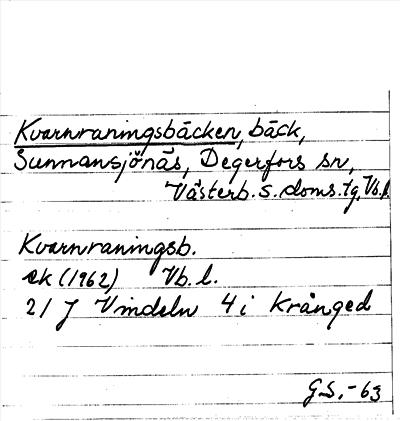 Kvarnraningsbäcken, bäck,
Sunnansjönäs, Degerfors sn,
Västerb. s. doms. tg, Vb. l.
Kvarnraningsb.
ek (1962) Vb. l.
21 J Vindeln 4 i Krånged
G.S. -63